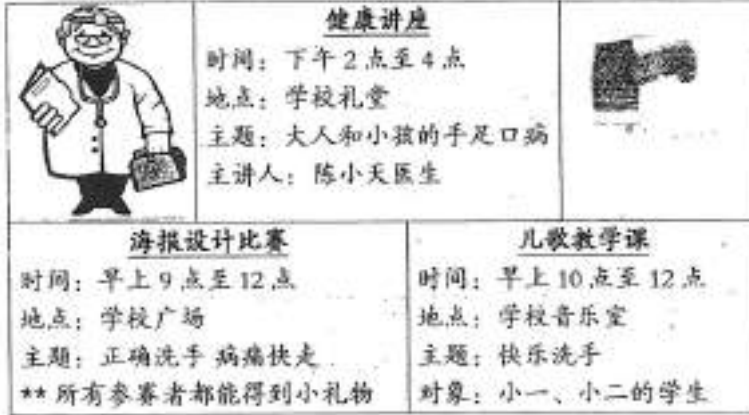 健康讲座
时间：下午2点至4点
地点：学校礼堂
主题：大人和小孩的手足口病
主讲人：陈小天医生
海报设计比赛
时间：早上9点至12点
地点：学校广场
主题：正确洗手 病痛快走
**所有参赛者都能得到小礼物
儿歌教学课
时间：早上10点至12点
地点：学校音乐室
主题：快乐洗手
对象：小一、小二的学生